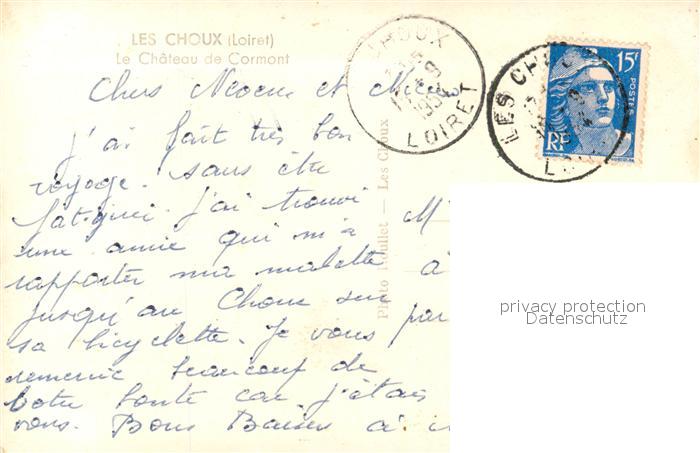 LES CHOUX (Loiret)
Le Château de Cormont
CHOUX
LOIRET
LES CHOUX
15F
POSTES
RF
Chers
et
j'ai fait très bon
voyage. sans être
fatiguée. j'ai trouvé
une amie qui m'a
rapporter ma malette
jusqu'au Choux sur
sa bicyclette. Je vous
remercie beaucoup de
votre bonté car j'étais
vous. Bons Baisers à
M
à
par
Photo Rouillet — Les Choux
privacy protection
Datenschutz